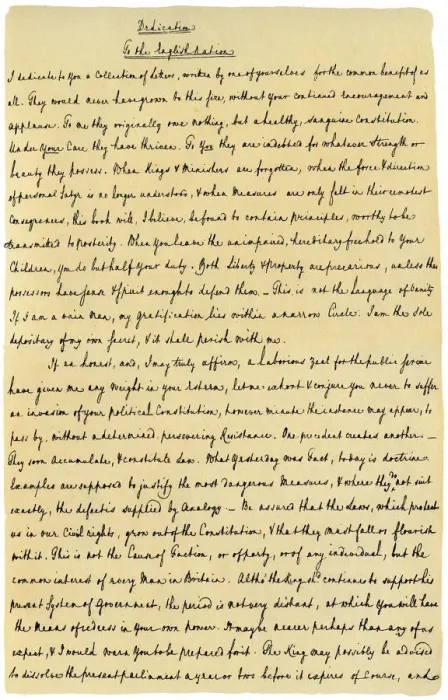 Dedication
To the English Nation
I dedicate to You a Collection of Letters, written by one of Yourselves for the common benefit of us
all. They would never have grown to this size, without Your continued encouragement and
applause. To me they originally owe nothing, but a healthy, sanguine Constitution.
Under Your Care they have thriven. To You they are indebted for whatever strength or
beauty they possess. When Kings & Ministers are forgotten, when the force & direction
of personal Satyr is no longer understood, & when Measures are only felt in their remotest
Consequences, this book will, I believe, be found to contain principles, worthy to be
transmitted to posterity. When You leave the unimpaired, hereditary freehold to Your
Children, You do but half Your duty. Both Liberty & property are precarious, unless the
possessors have sense & spirit enough to defend them. – This is not the Language of Vanity
If I am a vain Man, my gratification lies within a narrow Circle. I am the sole
depositary of my own Secret, & it shall perish with me.
If an honest, and, I may truly affirm, a laborious zeal for the public service
have given me any Weight in Your Esteem, let me exhort & conjure You never to suffer
an invasion of Your political Constitution, however minute the instance may appear, to
pass by, without a determined, persevering Resistance. One precedent creates another. –
They soon accumulate, & constitute Law. What Yesterday was Fact, today is doctrine.
Examples are supposed to justify the most dangerous Measures, & where they do not suit
exactly, the defect is supplied by Analogy – Be assured that the Laws, which protect
us in our Civil rights, grow out of the Constitution, & that they must fall or flourish
with it. This is not the Cause of Faction, or of party, or of any individual, but the
common interest of every Man in Britain. Altho' the King shd. continue to support his
present System of Government, the period is not very distant, at which You will have
the Means of redress in Your own power. It may be nearer perhaps than any of us
expect, & I would warn You to be prepared for it. The King may possibly be advised
to dissolve the present parliament a year or two before it expires of Course, and